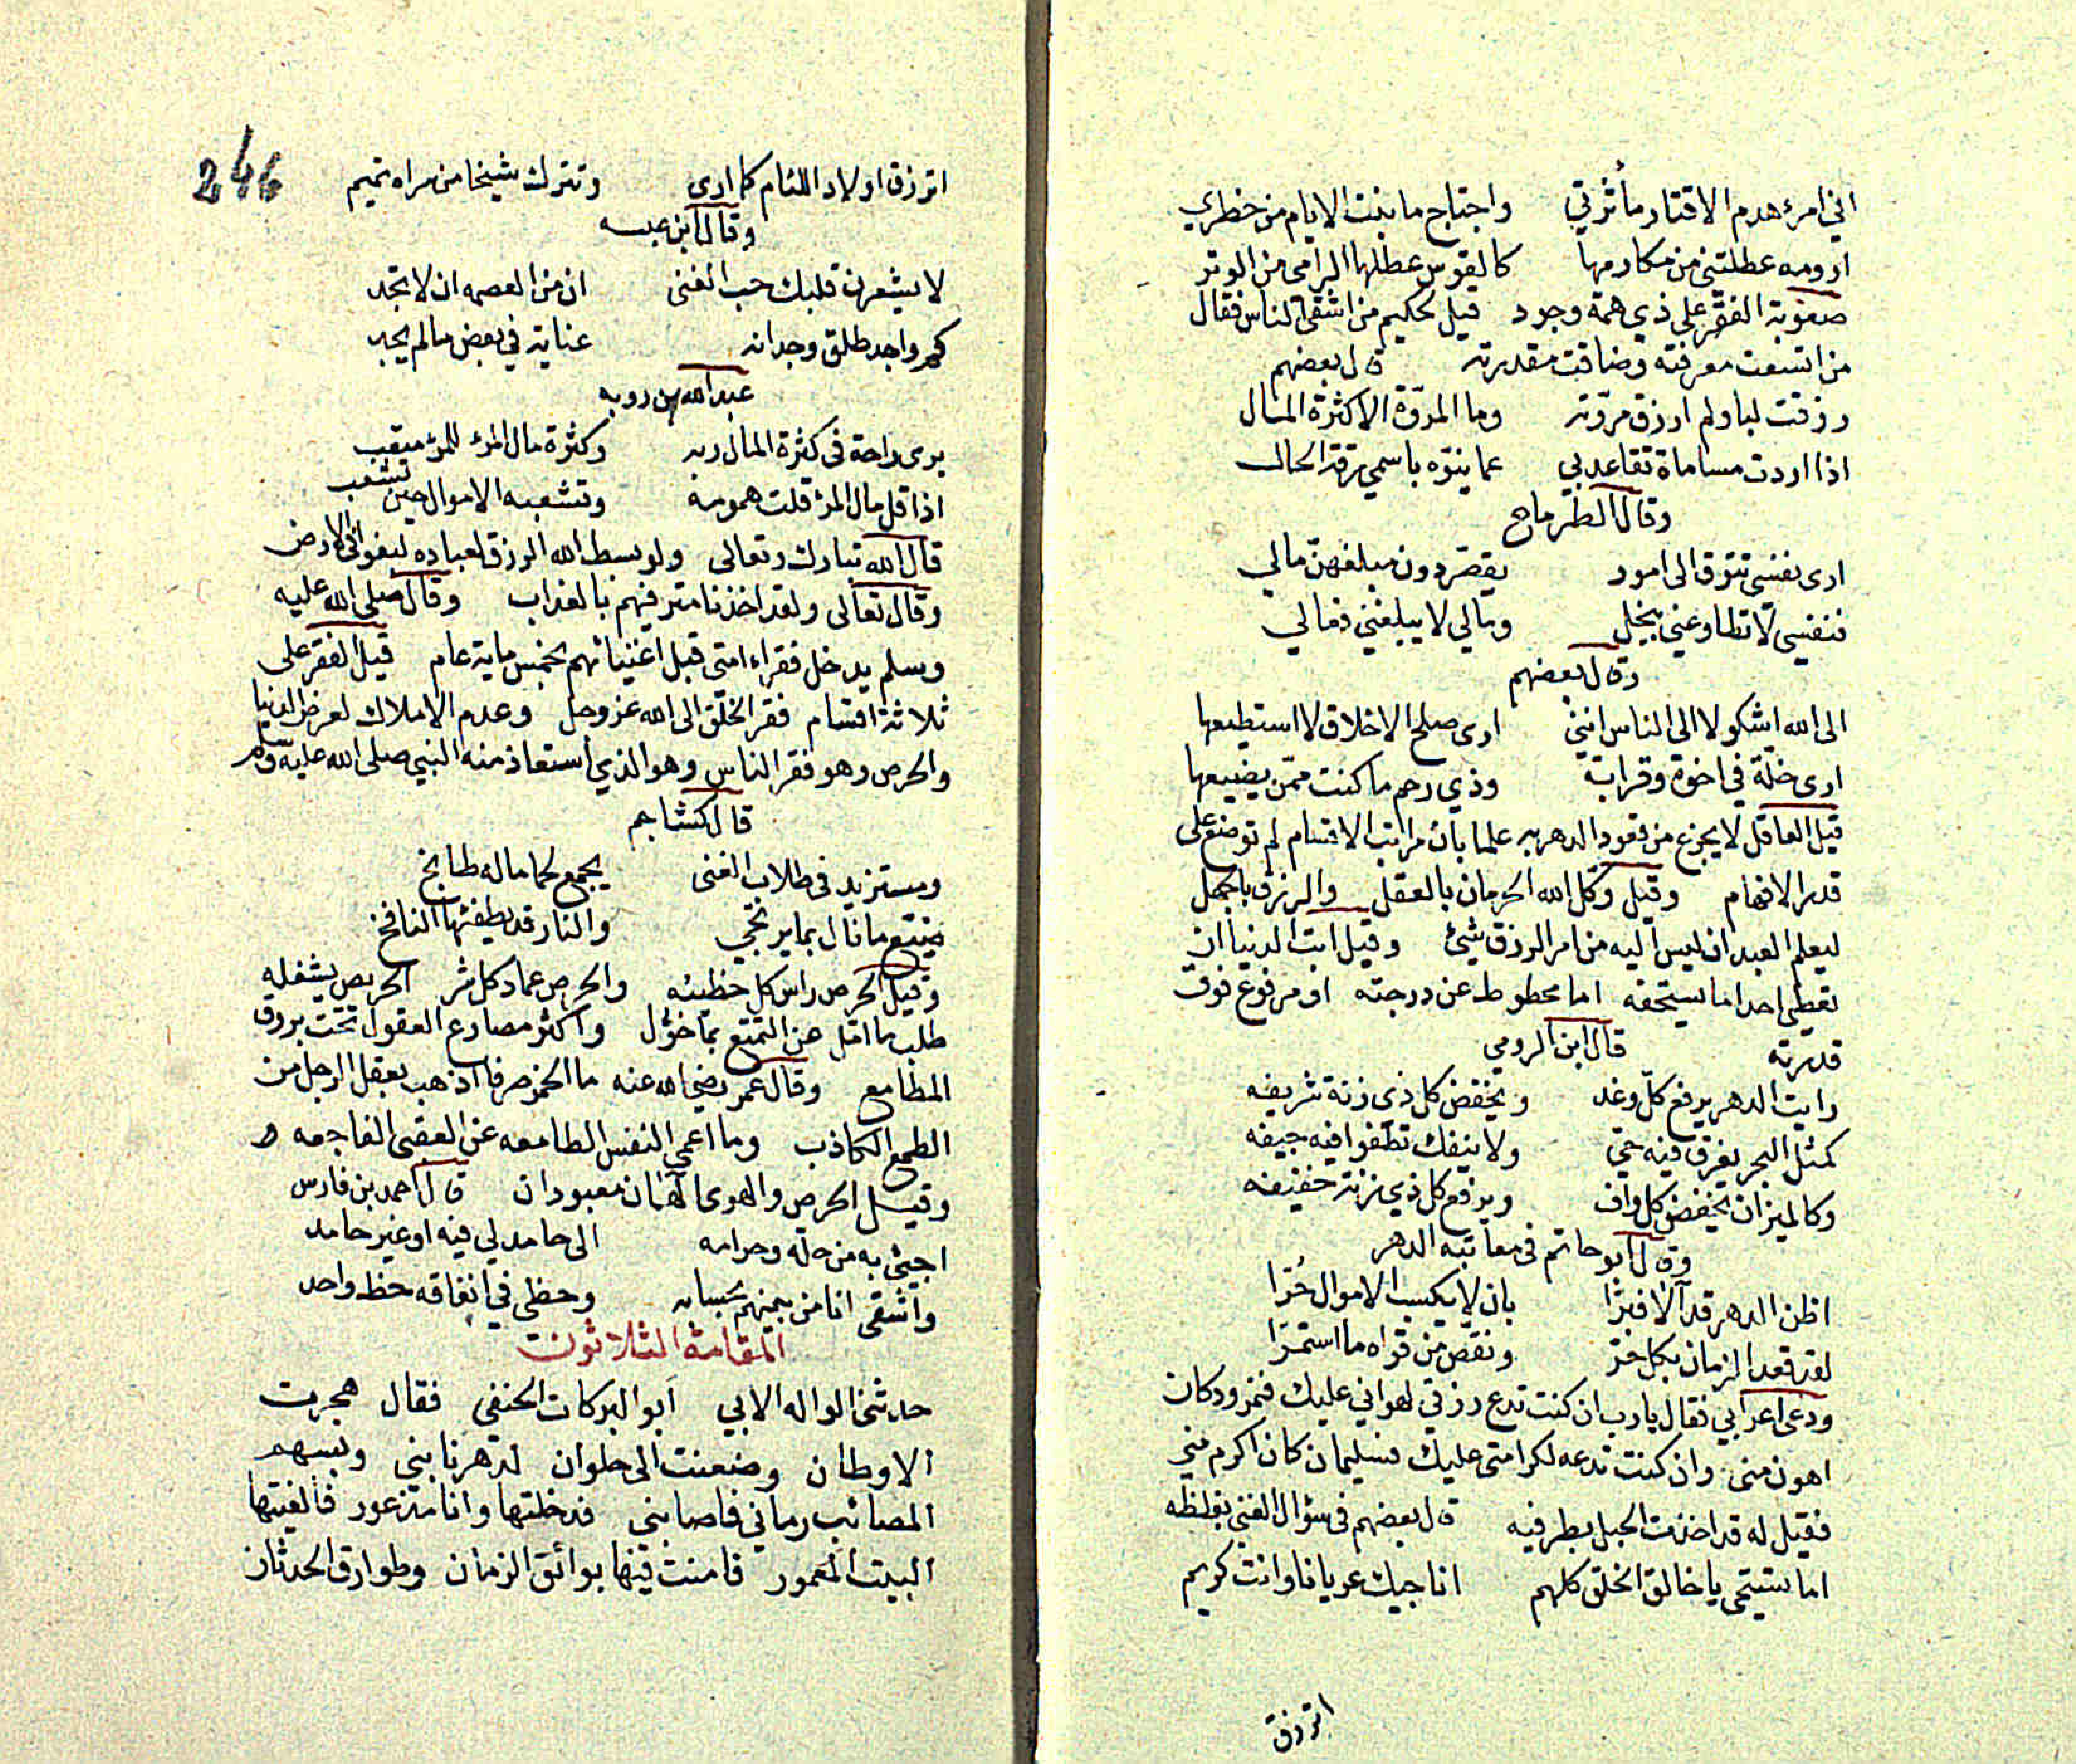 اني امرء هدم الاقتار مأثرتي واجتاح ما بنت الايام من خطري
ارومه عطلتني من مكارمها كالقوس عطلها الرامي من الوتر
صعوبة الفقر على ذي همة وجود قيل لحكيم من اشقى الناس فقال
من اتسعت معرفته وضاقت مقدرته قال بعضهم
رزقت لبا ولم ارزق مروّته وما المروّة الا كثرة المال
اذا اردت مساماة تقاعد بي عما ينوّه باسمي رقة الحال
وقال الطرماح
ارى نفسي تتوق الى امور يقصّر دون مبلغهنّ مالي
فنفسي لا تطاوعني ببخل ومالي لا يبلغني فعالي
وقال بعضهم
الى الله اشكو لا الى الناس انني ارى صلح الاخلاق لا استطيعها
ارى خلّة في اخوة وقرابة وذي رحم ما كنت ممّن يضيعها
قيل العاقل لا يجزع من قعود الدهر به علما بان مراتب الاقسام لم توضع على
قدر الافهام وقيل وكّل الله الحرمان بالعقل والرزق بالجهل
ليعلم العبد ان ليس اليه من امر الرزق شئ وقيل ابت الدنيا ان
تعطي احدا ما يستحقه اما محطوط عن درجته او مرفوع فوق
قدرته قال ابن الرومي
رايت الدهر يرفع كلّ وغد ويخفض كل ذي زنة شريفه
كمثل البحر يغرق فيه حيّ ولا ينفك تطفوا فيه جيفه
وكالميزان يخفض كل واف ويرفع كل ذي زنة خفيفه
وقال ابو حاتم في معاتبة الدهر
اظن الدهر قد آلا فبرّا بان لا يكسب الاموال حُرّا
لقد قعد الزمان بكل حرّ ونقص من قواه ما استمرّا
ودعى اعرابي فقال يا رب ان كنت تدع رزقي لهواني عليك فنمرود كان
اهون مني وان كنت تدعه لكرامتي عليك فسليمان كان اكرم مني
فقيل له قد اخذت الحبل بطرفيه قال بعضهم في سؤال الغني بغلظه
اما تستحي يا خالق الخلق كلهم اناجيك عريانا وانت كريم
اترزق
246
اترزق اولاد اللئام كما ارى وتترك شيخا من سراه تميم
وقال ابن عبسه
لا يشعرن قلبك حب الغنى ان من العصمه ان لا تجد
كم واجد طلق وجدانه عنايته في بعض ما لم يجد
عبد الله بن روبه
يرى راحة في كثرة المال ربه وكثرة مال المرء للمرء متعب
اذا قل مال المرء قلت همومه وتشعبه الاموال حين تشعب
قال الله تبارك وتعالى ولو بسط الله الرزق لعباده لبغوا في الارض
وقال تعالى ولقد اخذنا مترفيهم بالعذاب وقال صلى الله عليه
وسلم يدخل فقراء امتي قبل اغنيائهم بخمس ماية عام قيل الفقر على
ثلاثة اقسام فقر الخلق الى الله عز وجل وعدم الاملاك لعرض الدنيا
والحرص وهو فقر الناس وهو الذي استعاذ منه النبي صلى الله عليه وسلم
قال كشاجم
ومستزيد في طلاب الغنى يجمع لحما ما له طابخ
ضيّع ما نال بما يرتجي والنار قد يطفئها النافخ
وقيل الحرص راس كل خطيئه والحرص عماد كل شر الحريص يشغله
طلب ما امّل عن التمتع بما خوّل واكثر مصارع العقول تحت بروق
المطامع وقال عمر رضي الله عنه ما الخمر صرفا اذهب بعقل الرجل من
الطمع الكاذب وما اعمى النفس الطامعه عن العقبى الفاجعه
وقيل الحرص والهوى آلهان معبودان قال احمد بن فارس
اجيئ به من حلّه وحرامه الى حامد لي فيه او غير حامد
واشقى انا من بينهم بحسابه وحظي في انفاقه حظ واحد
المقامة الثلاثون
حدثنا الواله الابي ابو البركات الحنفي فقال هجرت
الاوطان وضعنت الى حلوان لدهر نابني وبسهم
المصائب رماني فاصابني فدخلتها وانا متزعور فالفيتها
البيت المعمور فامنت فيها بوائق الزمان وطوارق الحدثان